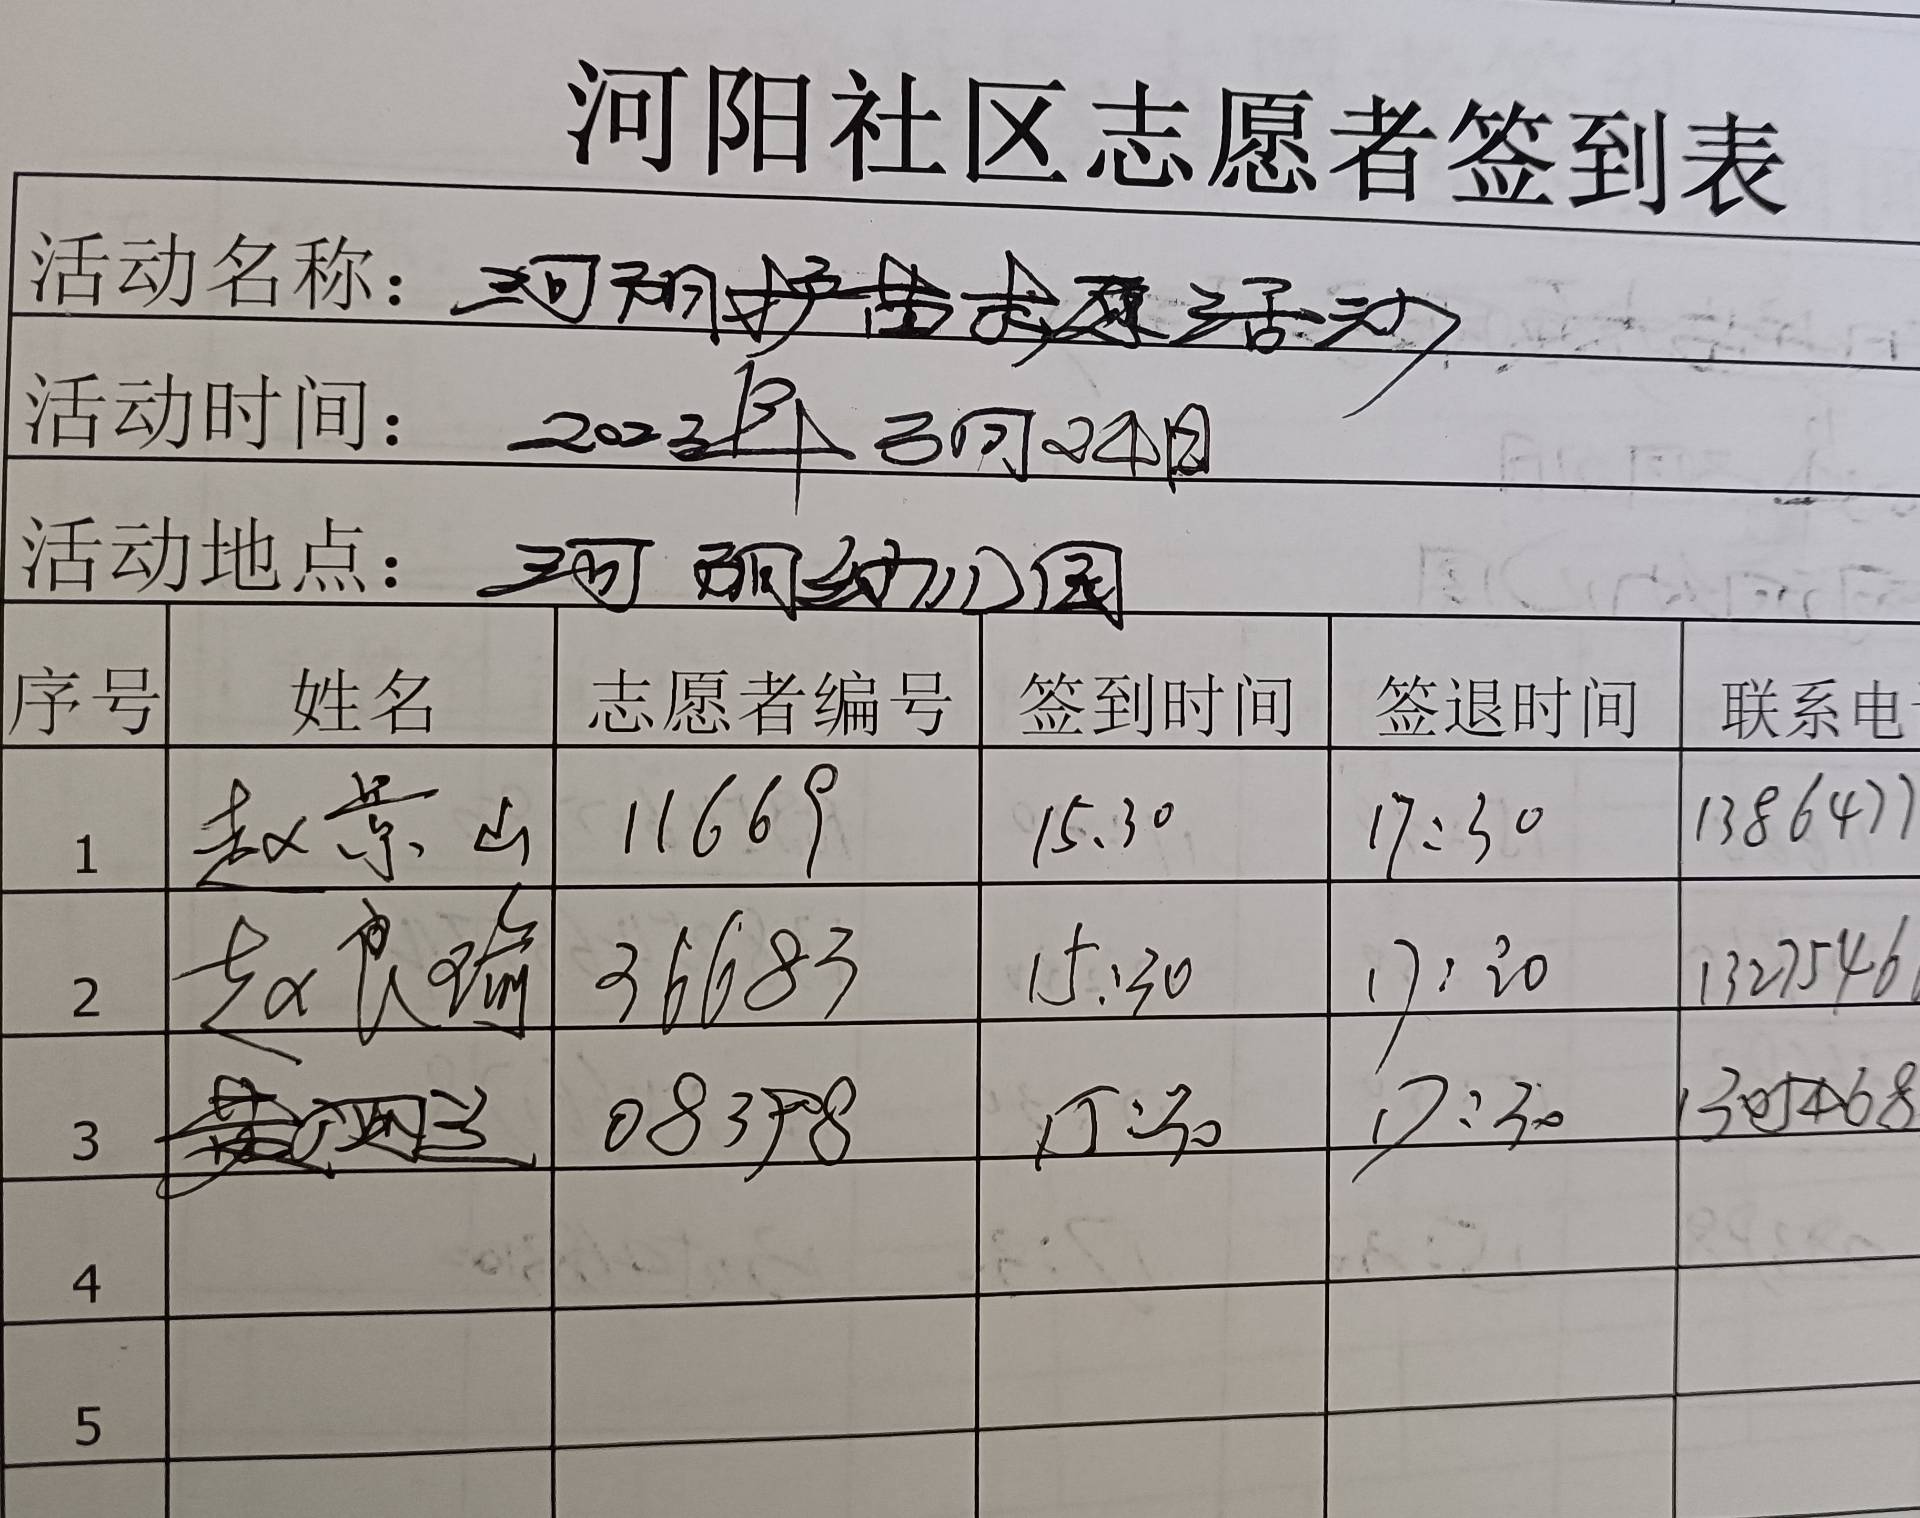 河阳社区志愿者签到表
活动名称：河阳护苗志愿活动
活动时间：2023年3月24日
活动地点：河阳幼儿园
序号 姓名 志愿者编号 签到时间 签退时间 联系电
1 赵景山 11669 15:30 17:30 1386477
2 赵良瑜 36683 15:30 17:30 1327546
3 08378 15:30 17:30
4
5